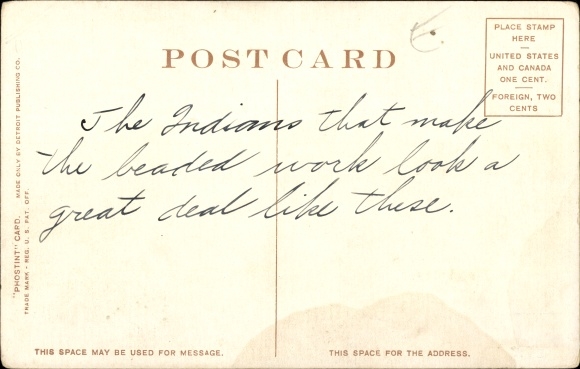 POST CARD
PLACE STAMP
HERE
UNITED STATES
AND CANADA
ONE CENT.
FOREIGN, TWO
CENTS
The Indians that make
the beaded work look a
great deal like these.
"PHOSTINT" CARD. MADE ONLY BY DETROIT PUBLISHING CO.
TRADE MARK - REG. U. S. PAT. OFF.
THIS SPACE MAY BE USED FOR MESSAGE.
THIS SPACE FOR THE ADDRESS.